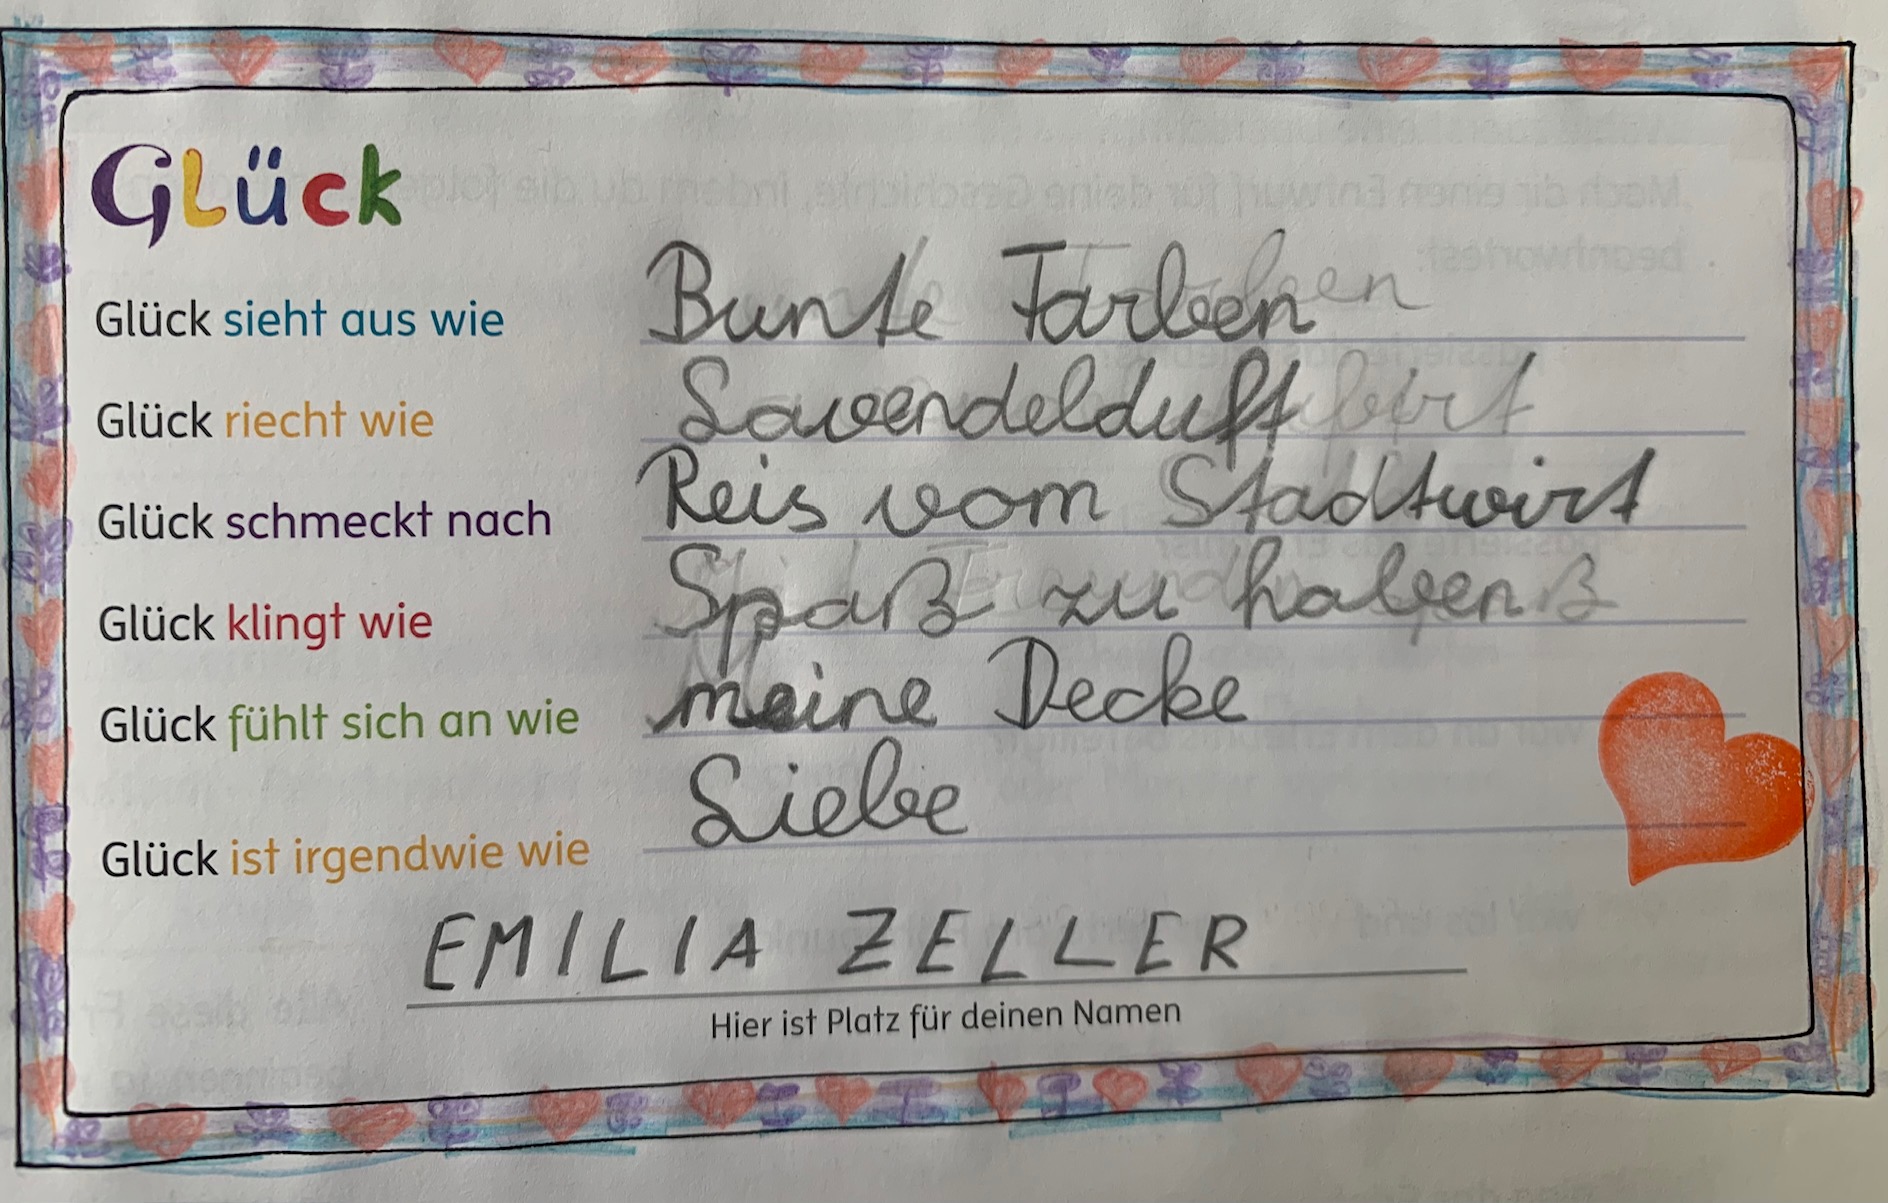 GLück
Glück sieht aus wie Bunte Farben
Glück riecht wie Lavendelduft
Glück schmeckt nach Reis vom Stadtwirt
Glück klingt wie Spaß zu haben
Glück fühlt sich an wie meine Decke
Glück ist irgendwie wie Liebe
EMILIA ZELLER
Hier ist Platz für deinen Namen